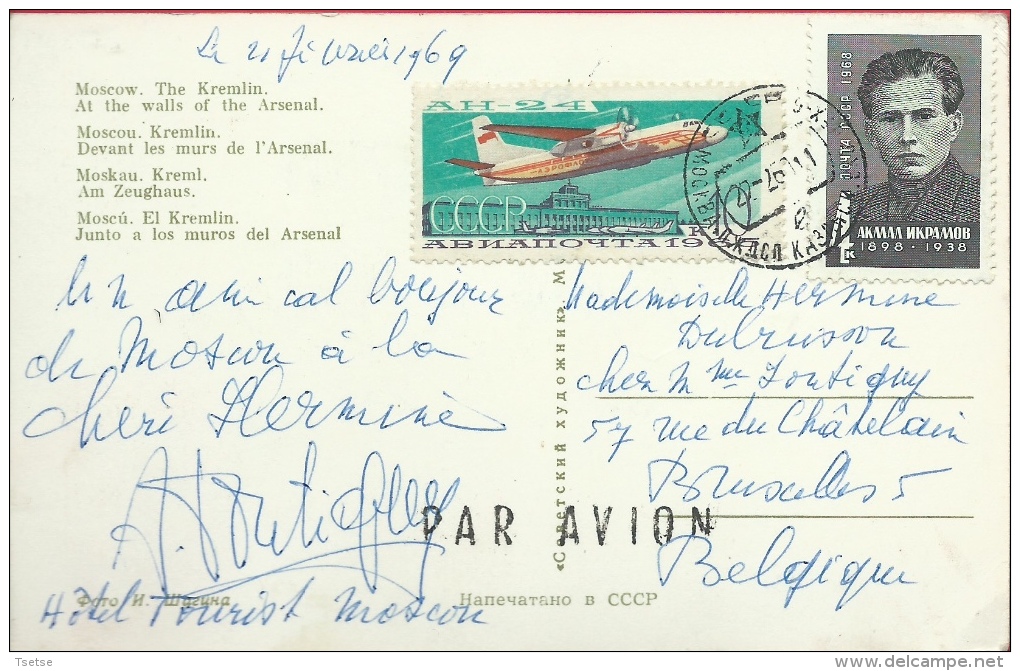 Le 21 février 1969
Moscow. The Kremlin.
At the walls of the Arsenal.
Moscou. Kremlin.
Devant les murs de l'Arsenal.
Moskau. Kreml.
Am Zeughaus.
Moscú. El Kremlin.
Junto a los muros del Arsenal
АН-24
АЭРОФЛОТ
СССР
АВИАПОЧТА
ПОЧТА СССР 1968
АКМАЛ ИКРАМОВ
1898-1938
4к
МОСКВА
Un amical bonjour
de Moscou à la
chèri Hermine
Hôtel Tourist Moscou
Mademoiselle Hermine
Dubruisson
chez Mme
57 rue du Châtelain
Bruxelles 5
Belgique
PAR AVION
«Советский художник»
Фото И. Шагина
Напечатано в СССР
Tsetse
delcampe.net